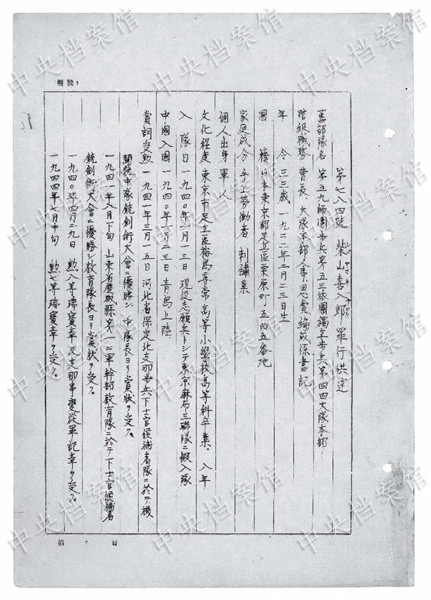 第七八四號 柴山喜八郎 罪行供述
舊部隊名 第五九師團步兵第五三旅團獨立步兵第四四大隊本部
階級職務 曹長、大隊本部人事恩賞編成係書記
年令 三三歳 一九二二年二月二三日生
國籍 日本東京都足立區栗原町五四五番地
家庭成分 手工労働者 刺繡業
個人出身 軍人
文化程度 東京市足立區梅島尋常高等小學校高等科卒業、八年
入隊日 一九四〇年一月一三日 現役志願兵トシテ東京麻布三聯隊ニ入隊
中國入國 一九四〇年一月二三日 青島上陸
賞詞受勲 一九四一年三月一五日 河北省保定北支那步兵下士官候補者隊ニ於テ機
関銃中隊銃剣術大會ニ優勝シ 中隊長ヨリ賞狀ヲ受ク。
一九四一年八月下旬 山東省 第一二軍幹部教育隊ニ於テ下士官候補者
銃剣術大會ニ優勝シ教育隊長ヨリ賞狀ヲ受ク。
一九四〇年四月二九日 勲八等瑞寶章及支那事變從軍記章ヲ受ク。
一九四四年 月中旬 勲七等瑞寶章ヲ受ク。
中央档案馆